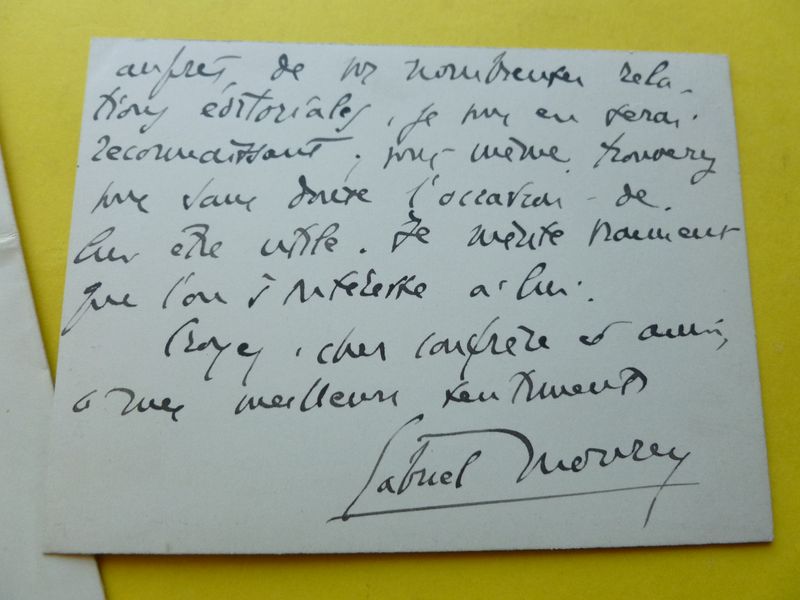 auprès, de vos nombreuses rela-
tions éditoriales, je vous en serai
reconnaissant ; vous-même trouverez
vous sans doute l'occasion de
lui être utile. Il mérite vraiment
que l'on s'intéresse à lui.
Croyez, cher confrère et ami,
à mes meilleurs sentiments
Gabriel Mourey